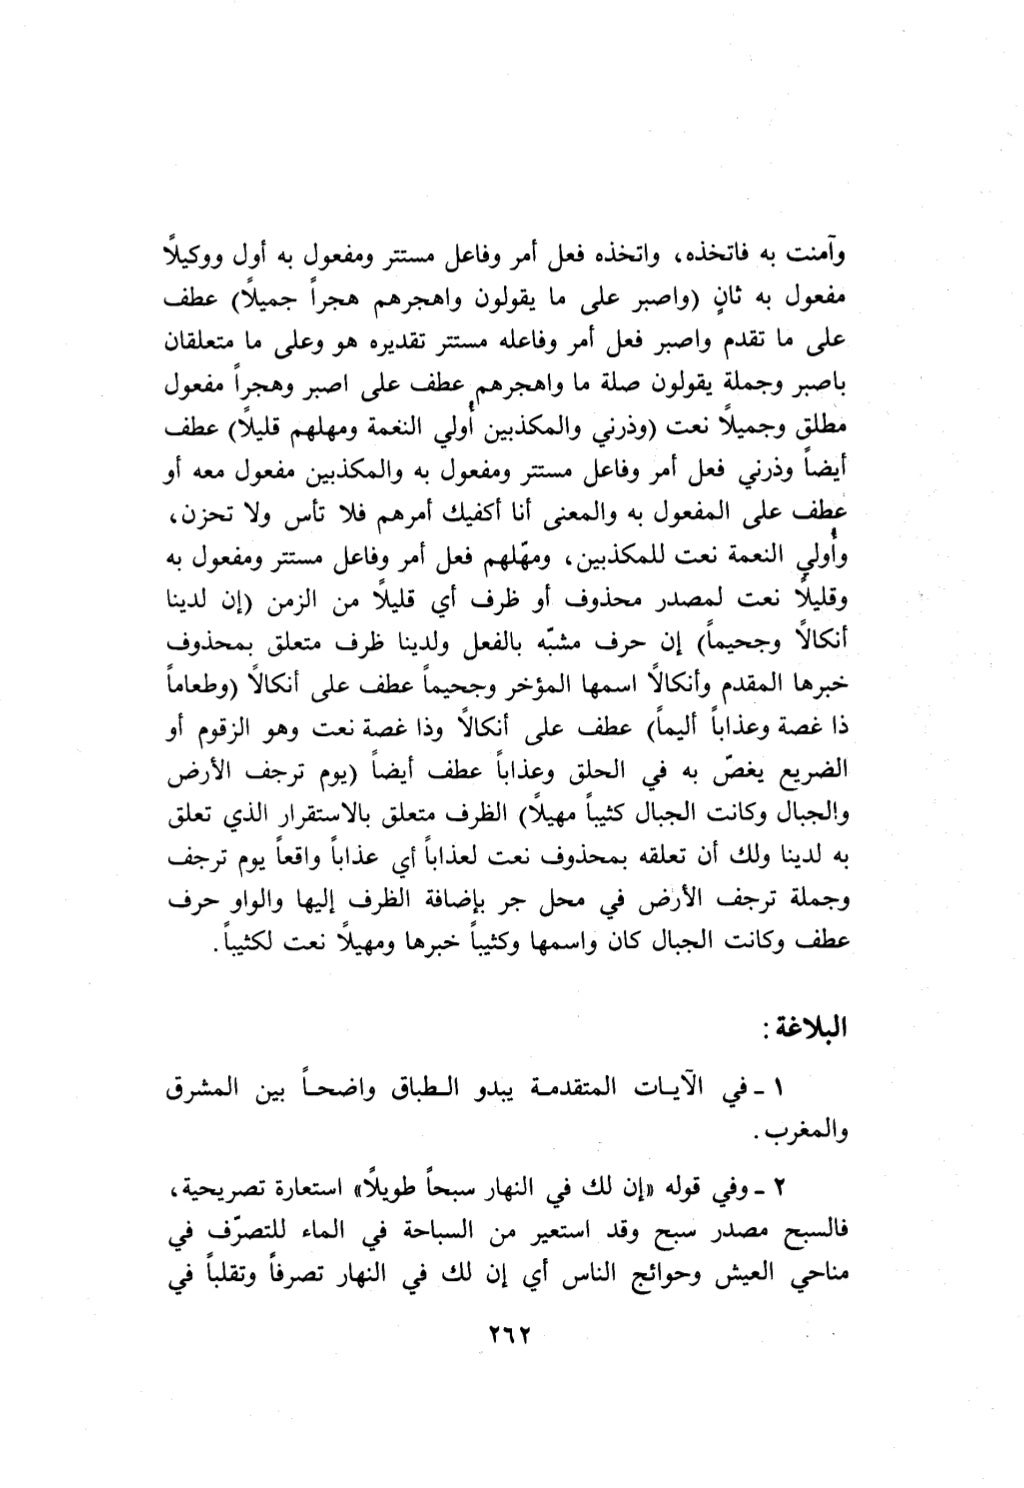 وآمنت به فاتخذه، واتخذه فعل أمر وفاعل مستتر ومفعول به أول ووكيلاً
مفعول به ثانٍ (واصبر على ما يقولون واهجرهم هجراً جميلاً) عطف
على ما تقدم واصبر فعل أمر وفاعله مستتر تقديره هو وعلى ما متعلقان
باصبر وجملة يقولون صلة ما واهجرهم عطف على اصبر وهجراً مفعول
مطلق وجميلاً نعت (وذرني والمكذبين أُولي النعمة ومهلهم قليلاً) عطف
أيضاً وذرني فعل أمر وفاعل مستتر ومفعول به والمكذبين مفعول معه أو
عطف على المفعول به والمعنى أنا أكفيك أمرهم فلا تأس ولا تحزن،
وأُولي النعمة نعت للمكذبين، ومهّلهم فعل أمر وفاعل مستتر ومفعول به
وقليلاً نعت لمصدر محذوف أو ظرف أي قليلاً من الزمن (إن لدينا
أنكالاً وجحيماً) إن حرف مشبّه بالفعل ولدينا ظرف متعلق بمحذوف
خبرها المقدم وأنكالاً اسمها المؤخر وجحيماً عطف على أنكالاً (وطعاماً
ذا غصة وعذاباً أليماً) عطف على أنكالاً وذا غصة نعت وهو الزقوم أو
الضريع يغصّ به في الحلق وعذاباً عطف أيضاً (يوم ترجف الأرض
والجبال وكانت الجبال كثيباً مهيلاً) الظرف متعلق بالاستقرار الذي تعلق
به لدينا ولك أن تعلقه بمحذوف نعت لعذاباً أي عذاباً واقعاً يوم ترجف
وجملة ترجف الأرض في محل جر بإضافة الظرف إليها والواو حرف
عطف وكانت الجبال كان واسمها وكثيباً خبرها ومهيلاً نعت لكثيباً.
البلاغة:
١ ـ في الآيات المتقدمة يبدو الطباق واضحاً بين المشرق
والمغرب.
٢ ـ وفي قوله «إن لك في النهار سبحاً طويلاً» استعارة تصريحية،
فالسبح مصدر سبح وقد استعير من السباحة في الماء للتصرّف في
مناحي العيش وحوائج الناس أي إن لك في النهار تصرفاً وتقلباً في
٢٦٢